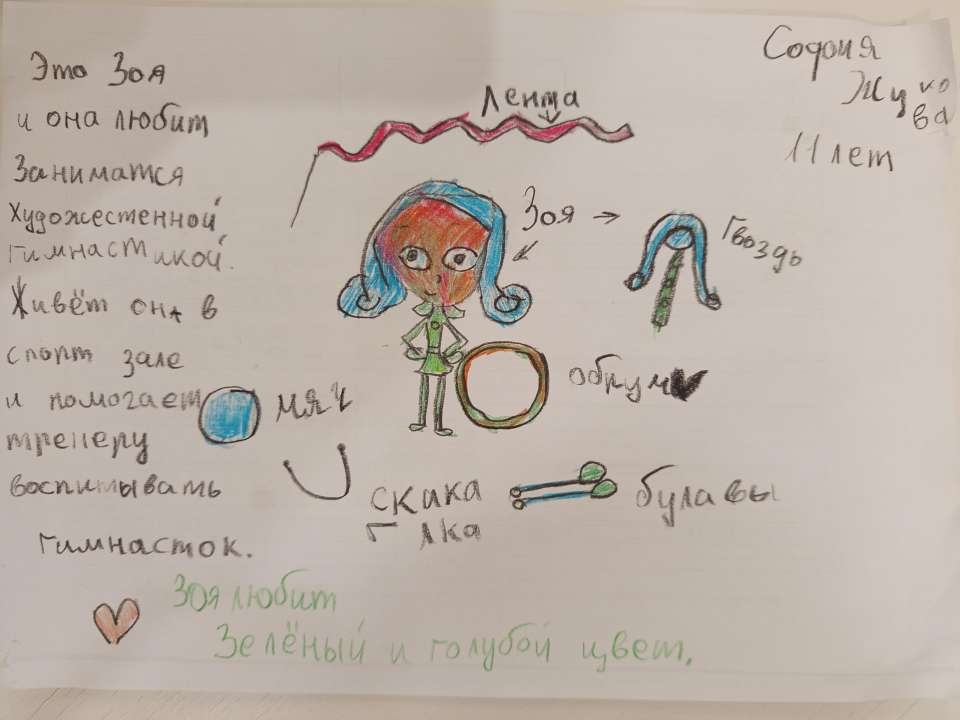 София
Жуко
ва
11 лет
Это Зоя
и она любит
Заниматся
Художественной
Гимнастикой.
Живёт она в
спорт зале
и помогает
тренеру
воспитывать
гимнасток.
Лента
Зоя
Гвоздь
обруч
мяч
скака
лка
булавы
Зоя любит
Зелёный и голубой цвет.